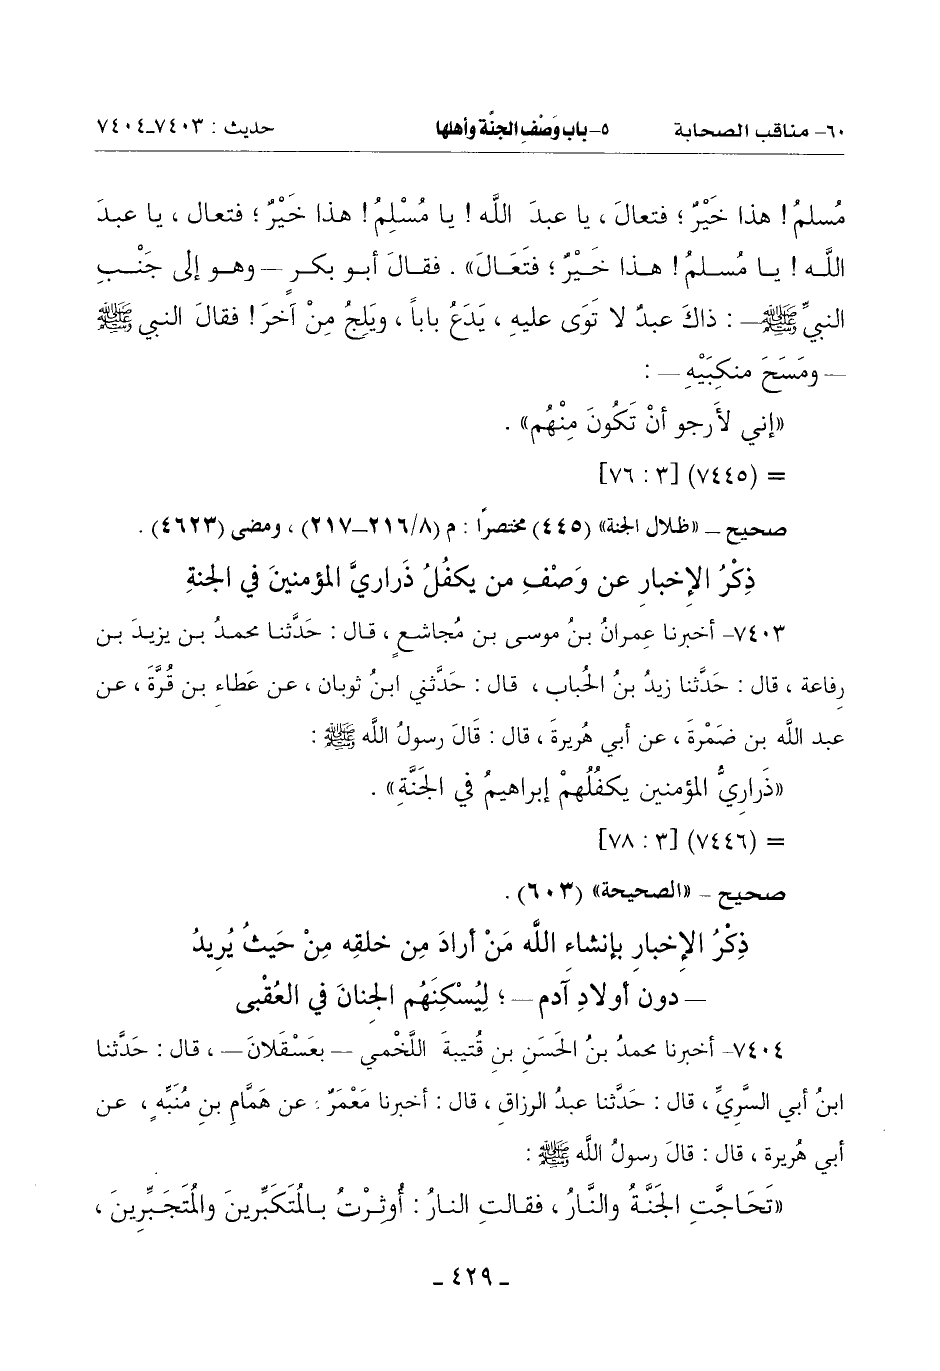 ٦٠- مناقب الصحابة ٥- باب وَصْفِ الجنَّة وأهلها حديث : ٧٤٠٣-٧٤٠٤
مُسلمُ! هذا خَيْرٌ ؛ فتعالَ ، يا عبدَ اللَّه ! يا مُسْلِمُ! هذا خَيْرٌ ؛ فتعال ، يا عبدَ
اللَّه ! يـا مُسـلمُ! هـذا خَـيْرٌ ؛ فتَعَالَ» . فقـالَ أبـو بكـرٍ —وهـو إلى جَنْـبِ
النبيِّ ﷺ— : ذاكَ عبدٌ لا تَوَى عليهِ ، يَدَعُ باباً ، ويَلِجُ مِنْ آخَرَ ! فقالَ النبي ﷺ
—ومَسَحَ منكِبَيْهِ— :
«إني لأَرجو أنْ تَكُونَ مِنْهُم» .
= (٧٤٤٥) [٣ : ٧٦]
صحيح ـ «ظلال الجنة» (٤٤٥) مختصراً : م (٢١٦/٨–٢١٧) ، ومضى (٤٦٢٣) .
ذِكْرُ الإخبارِ عن وَصْفِ من يكفُلُ ذَراريَّ المؤمنينَ في الجنةِ
٧٤٠٣- أخبرنا عِمرانُ بنُ موسى بن مُجاشعٍ ، قال : حَدَّثنا محمدُ بـن يزيـدَ بـن
رِفاعة ، قال : حَدَّثنا زيدُ بنُ الحُباب ، قال : حَدَّثني ابنُ ثوبان ، عـن عَطاءِ بـن قُرَّةَ ، عـن
عبد اللَّه بن ضَمْرةَ ، عن أبي هُريرةَ ، قال : قَالَ رسولُ اللَّه ﷺ :
«ذَراريُّ المؤمنين يكفُلُهمْ إبراهيمُ في الجَنَّةِ» .
= (٧٤٤٦) [٣ : ٧٨]
صحيح ـ «الصحيحة» (٦٠٣) .
ذِكْرُ الإخبارِ بإنشاءِ اللَّه مَنْ أرادَ مِن خلقِه مِنْ حَيثُ يُريدُ
—دون أولادِ آدم— ؛ لِيُسْكِنَهُم الجنانَ في العُقْبى
٧٤٠٤- أخبرنا محمدُ بنُ الحَسَنِ بنِ قُتيبةَ اللَّخْمي —بعَسْقَلانَ— ، قال : حَدَّثنا
ابنُ أبي السَّريِّ ، قال : حَدَّثنا عبدُ الرزاقِ ، قال : أخبرنا مَعْمَرٌ ، عن هَمَّامِ بنِ مُنَبِّهٍ ، عـن
أبي هُريرة ، قال : قالَ رسولُ اللَّه ﷺ :
«تَحَاجَّتِ الجَنَّةُ والنَّارُ ، فقالتِ النارُ : أُوثِرْتُ بـالمُتَكَبِّرينَ والمُتَجَبِّرِينَ ،
ـ ٤٢٩ ـ